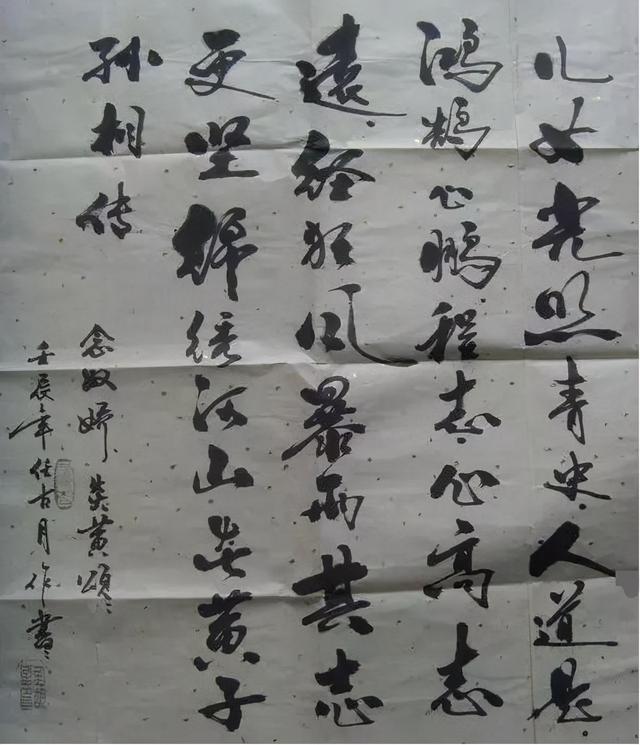 儿女光照青史人道是
鸿鹄心鹏程志心高志
远经狂风暴雨其志
更坚锦绣河山炎黄子
孙相传
念奴娇炎黄颂
壬辰年任古月作书